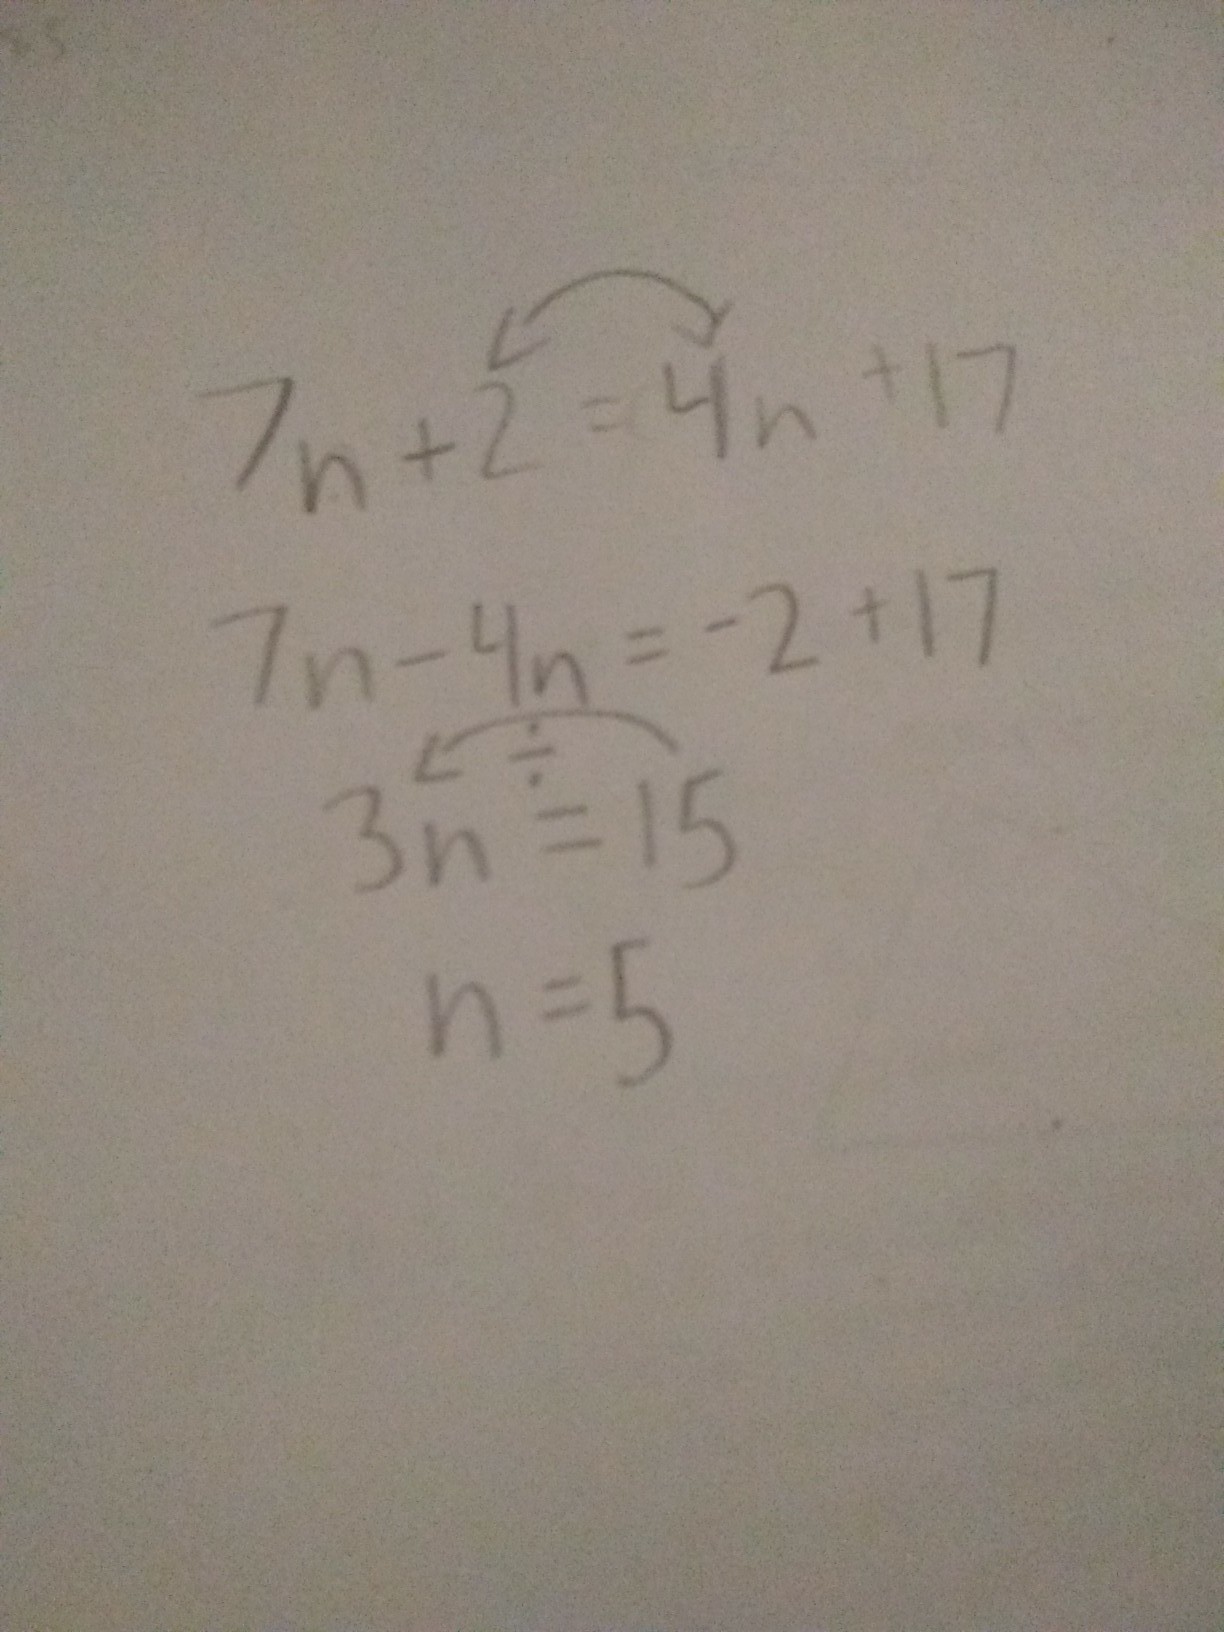 7n+2=4n+17
7n-4n=-2+17
÷
3n=15
n=5